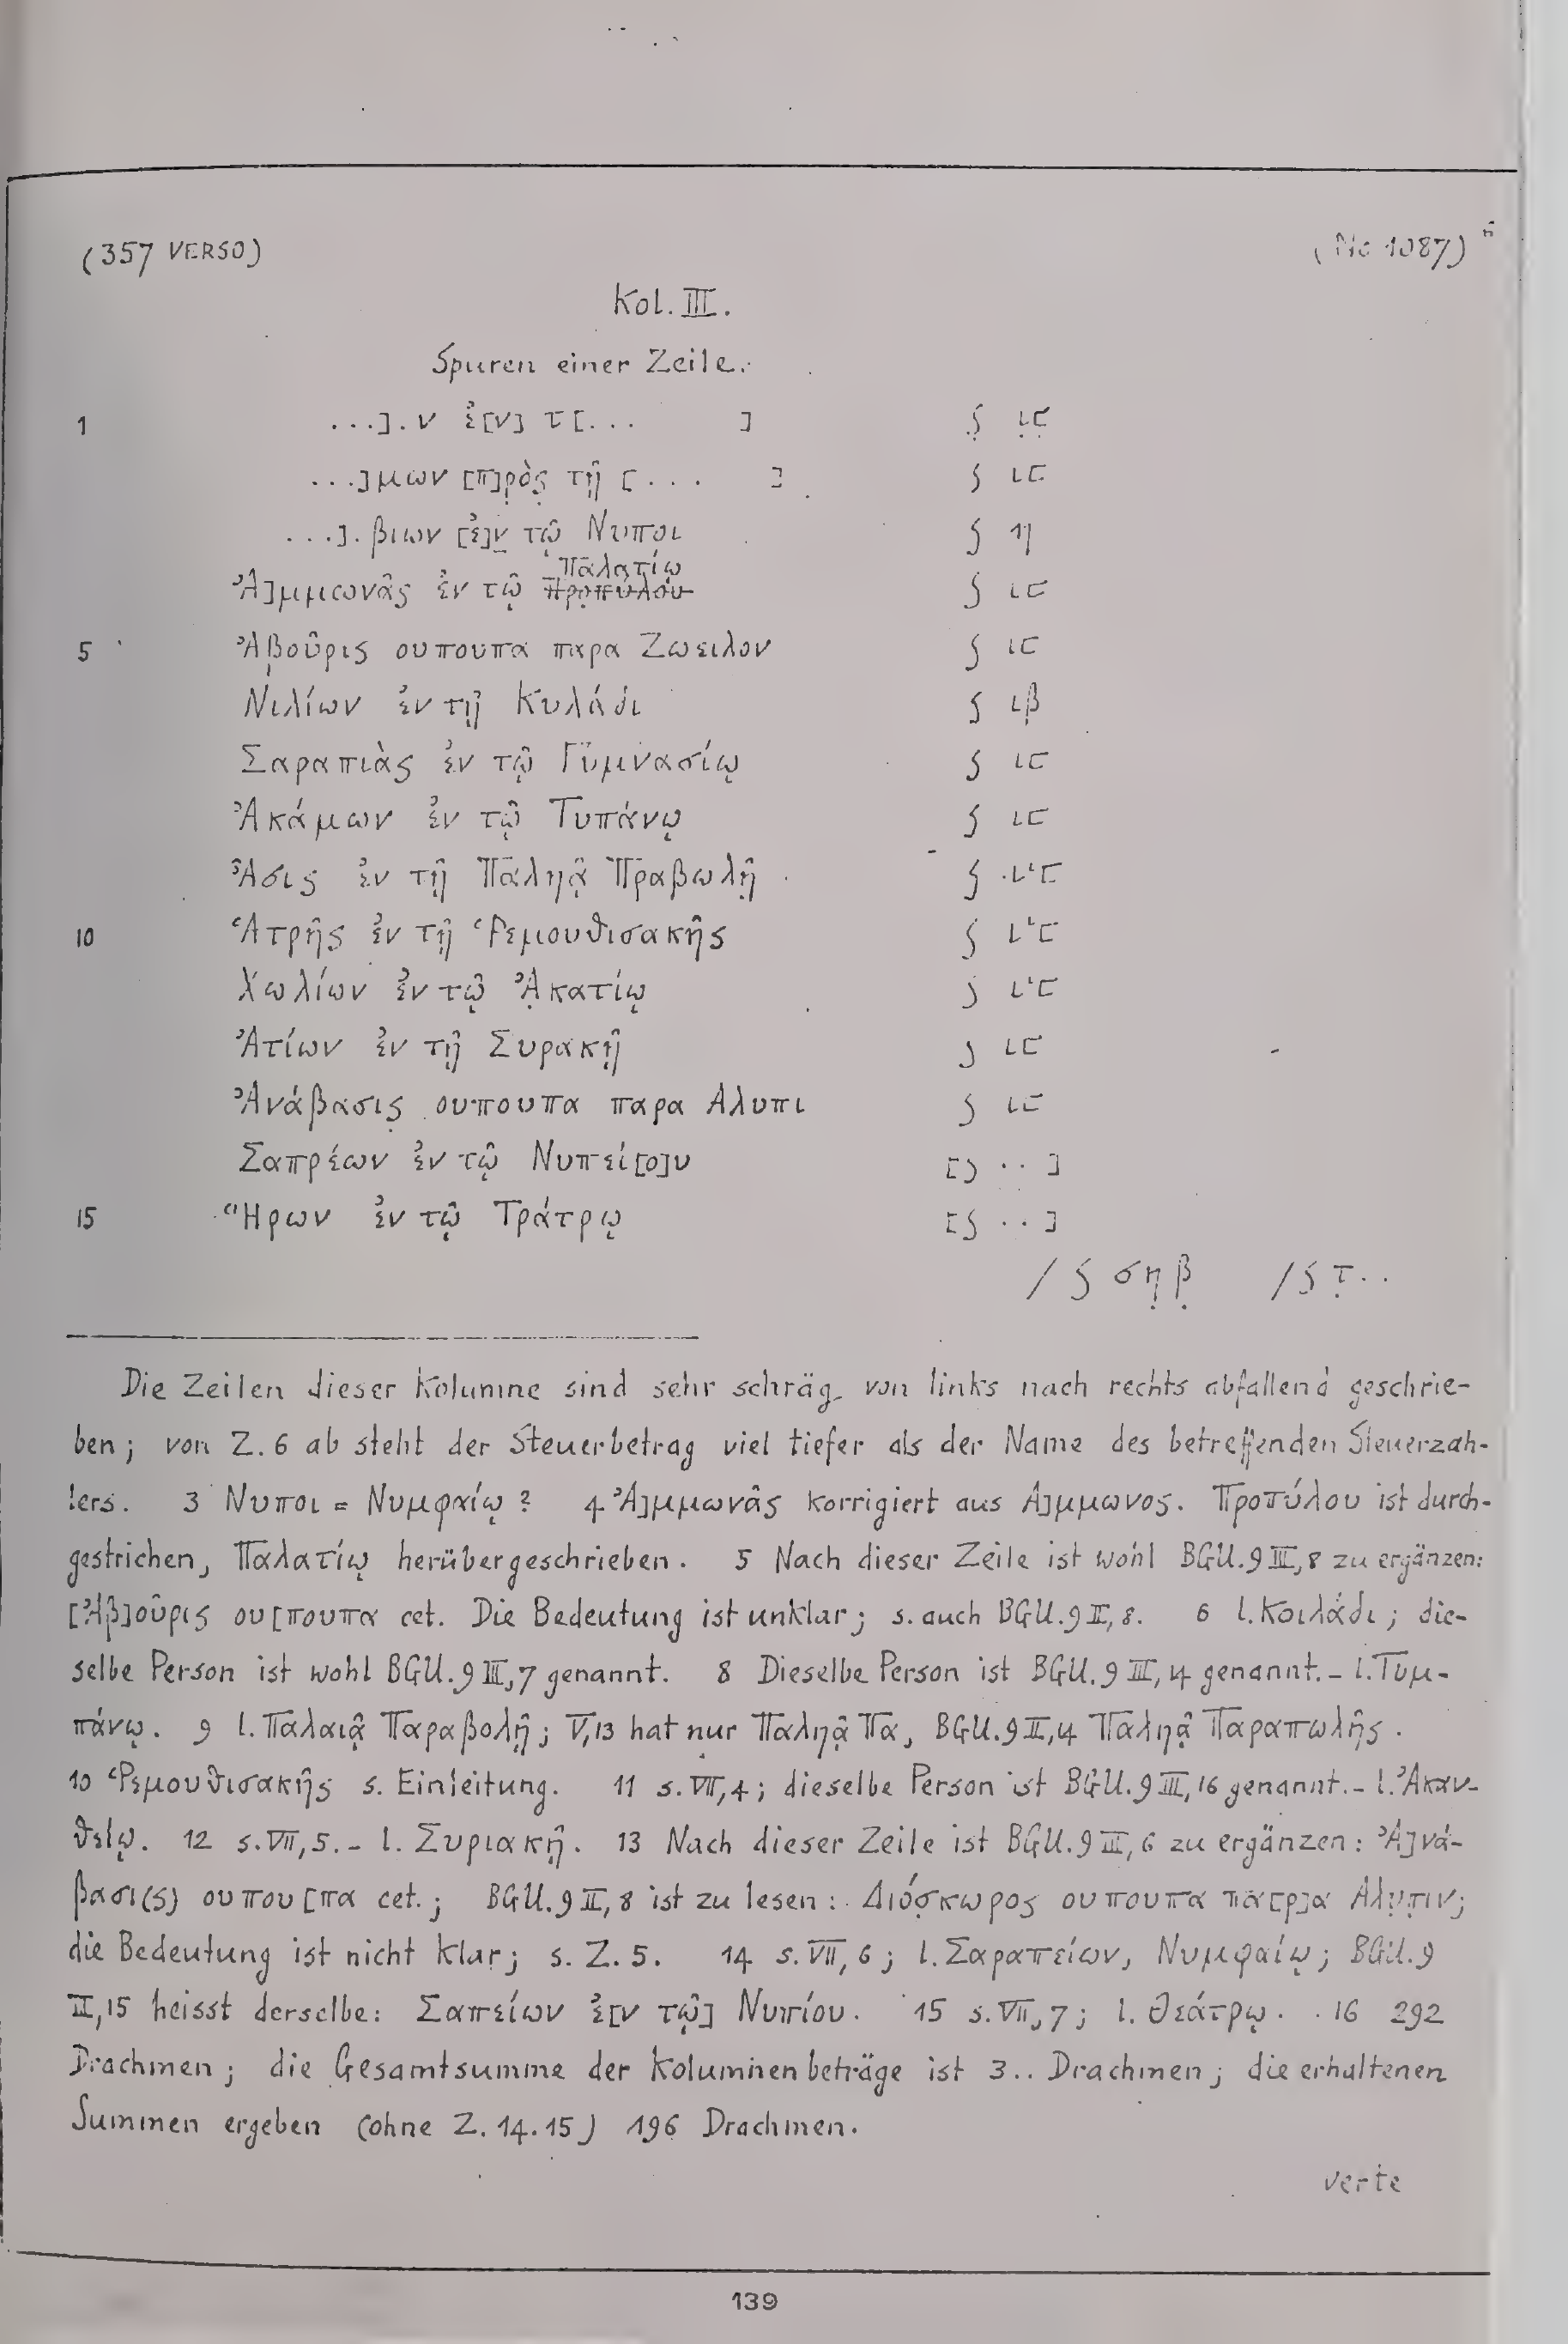 (357 VERSO) (No 1087)
Kol. III.
Spuren einer Zeile.
1 ...]. ν ἐ[ν] τ[... ] ʃ ιϛ
...]μων [π]ρὸς τῇ [... ] ʃ ιϛ
...]. βιων [ἐ]ν τῷ Νυποι ʃ η
Παλατίῳ
Ἀ]μμωνᾶς ἐν τῷ Προπύλου ʃ ιϛ
5 Ἀβοῦρις ουπουπα παρα Ζωειλον ʃ ιϛ
Νιλίων ἐν τῇ Κυλάδι ʃ ιβ
Σαραπιὰς ἐν τῷ Γυμνασίῳ ʃ ιϛ
Ἀκάμων ἐν τῷ Τυπάνῳ ʃ ιϛ
Ἆσις ἐν τῇ Παληᾷ Πραβωλῇ ʃ ιϛ
10 Ἁτρῆς ἐν τῇ Ῥεμουθισακῆς ʃ ιϛ
Χωλίων ἐν τῷ Ἀκατίῳ ʃ ιϛ
Ἀτίων ἐν τῇ Συρακῇ ʃ ιϛ
Ἀνάβασις ουπουπα παρα Αλυπι ʃ ιϛ
Σαπρέων ἐν τῷ Νυπεί[ο]υ [ʃ ..]
15 Ἥρων ἐν τῷ Τράτρῳ [ʃ ..]
/ ʃ σηβ / ʃ τ..
Die Zeilen dieser Kolumne sind sehr schräg von links nach rechts abfallend geschrie-
ben; von Z. 6 ab steht der Steuerbetrag viel tiefer als der Name des betreffenden Steuerzah-
lers. 3 Νυποι = Νυμφαίῳ? 4 Ἀ]μμωνᾶς korrigiert aus Α]μμωνος. Προπύλου ist durch-
gestrichen, Παλατίῳ herübergeschrieben. 5 Nach dieser Zeile ist wohl BGU. 9 III, 8 zu ergänzen:
[Ἀβ]οῦρις ου[πουπα cet. Die Bedeutung ist unklar; s. auch BGU. 9 II, 8. 6 l. Κοιλάδι; die-
selbe Person ist wohl BGU. 9 III, 7 genannt. 8 Dieselbe Person ist BGU. 9 III, 4 genannt. – l. Τυμ-
πάνῳ. 9 l. Παλαιᾷ Παραβολῇ; V, 13 hat nur Παληᾷ Πα, BGU. 9 II, 4 Παληᾷ Παραπωλῆς.
10 Ῥεμουθισακῆς s. Einleitung. 11 s. VII, 4; dieselbe Person ist BGU. 9 III, 16 genannt. – l. Ἀκαν-
θείῳ. 12 s. VII, 5. – l. Συριακῇ. 13 Nach dieser Zeile ist BGU. 9 III, 6 zu ergänzen: Ἀ]νά-
βασι(ς) ουπου[πα cet.; BGU. 9 II, 8 ist zu lesen: Διόσκωρος ουπουπα πα[ρ]α Αλυπιν;
die Bedeutung ist nicht klar; s. Z. 5. 14 s. VII, 6; l. Σαραπείων, Νυμφαίῳ; BGU. 9
II, 15 heisst derselbe: Σαπείων ἐ[ν τῷ] Νυπίου. 15 s. VII, 7; l. Θεάτρῳ. 16 292
Drachmen; die Gesamtsumme der Kolumnenbeträge ist 3.. Drachmen; die erhaltenen
Summen ergeben (ohne Z. 14. 15) 196 Drachmen.
verte
139